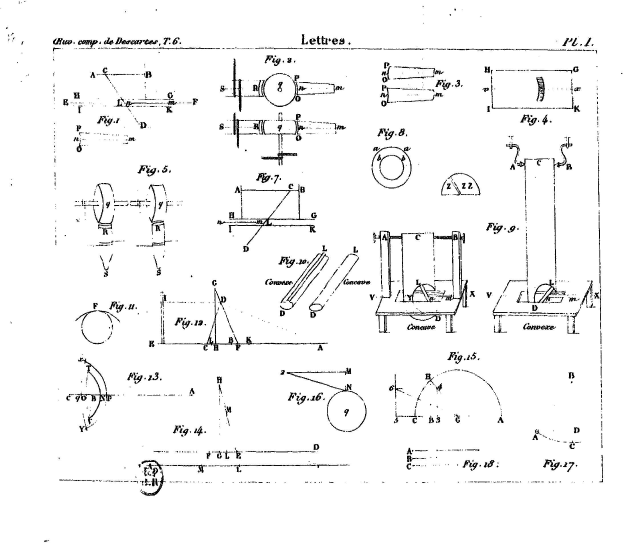 Œuv. comp. de Descartes, T. 6.
Lettres.
Pl. 1.
Fig. 1
A C B
E H I L G K F
m
D
P
n m
O
Fig. 2.
S R q P n m O
S R q P n m O
Fig. 3.
P n m O
P n m O
Fig. 4.
H G
I K
Fig. 5.
q q
R R
S S
Fig. 7.
A C B
H G
n m L
I K
D
Fig. 8.
a a
b b
2 22
Fig. 9.
A C B
L
V X
n m
D
Convexe
A C B
L
V X
n m
D
Concave
Fig. 10.
L L
Convexe
Concave
D D
Fig. 11.
F
Fig. 12.
G
I D
E C H B P K A
Fig. 13.
T
C q O B N P
A
Y F
Fig. 14.
H
M
F G L E D
M L
Fig. 15.
H
6
S C B 3 G A
Fig. 16.
2 M
N
q
Fig. 17.
B
A D
C
Fig. 18.
A
B
C